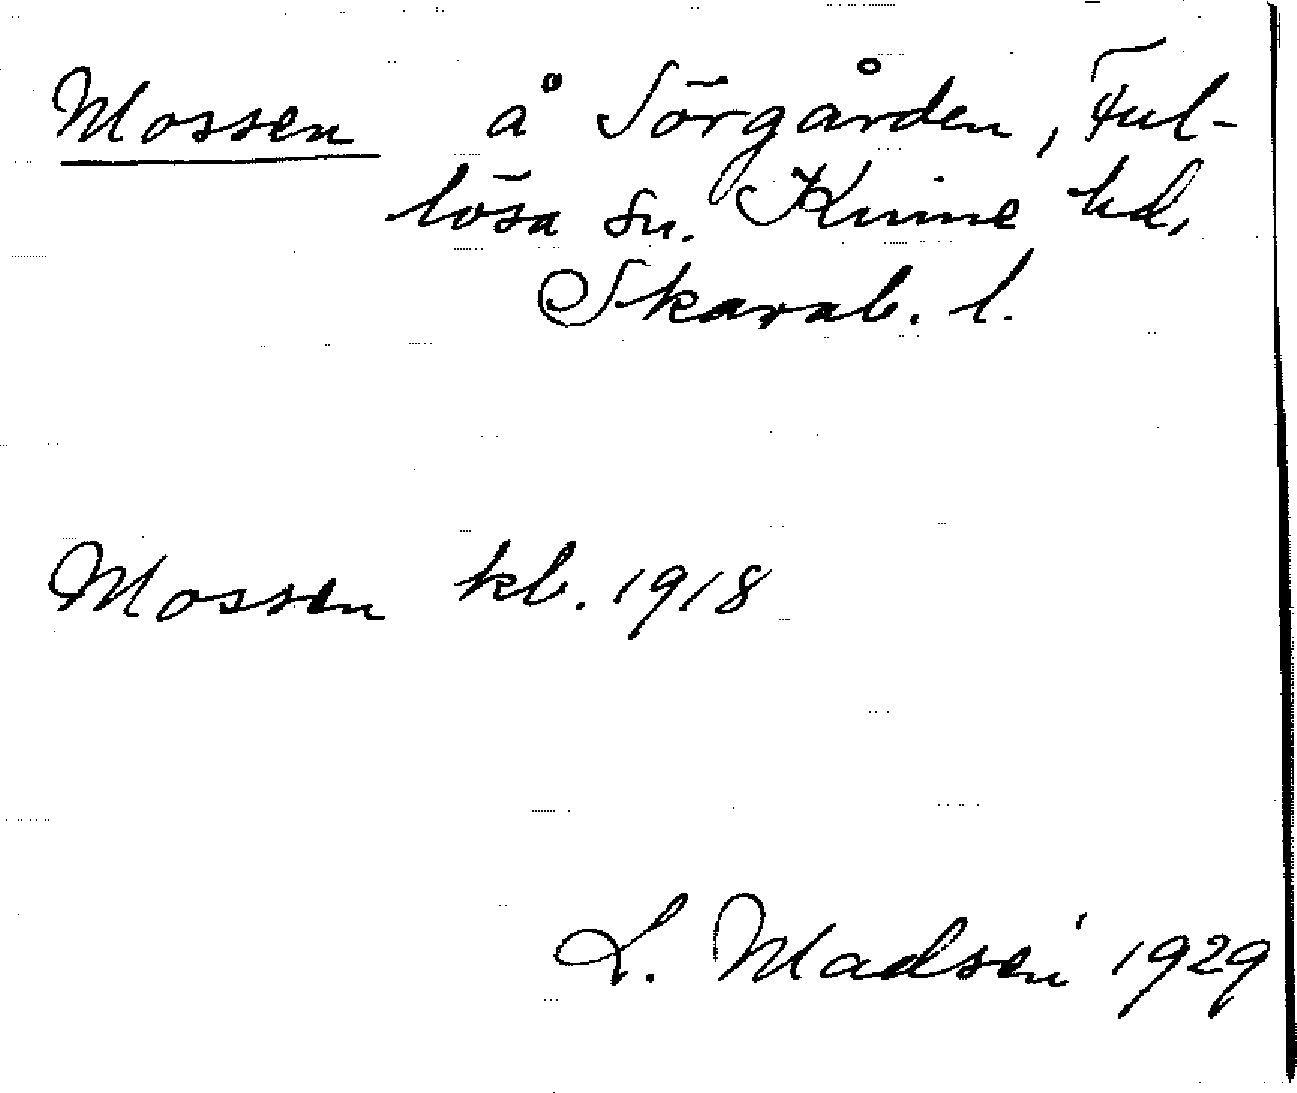 Mossen å Sörgården, Ful-
lösa sn. Kinne hd,
Skarab. l.
Mossen kb. 1918
L. Madsen 1929